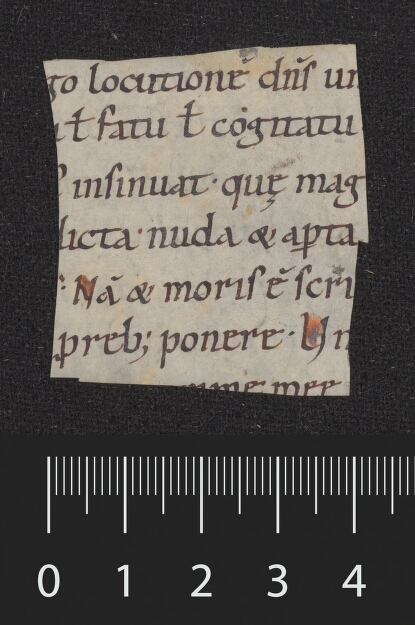 go locutionē dn̄s un
ł fatu ł cogitatu
insinuat · quę mag
licta · nuda & apta
· Nā & moris ē scri
p̱reb; ponere · Un
0 1 2 3 4